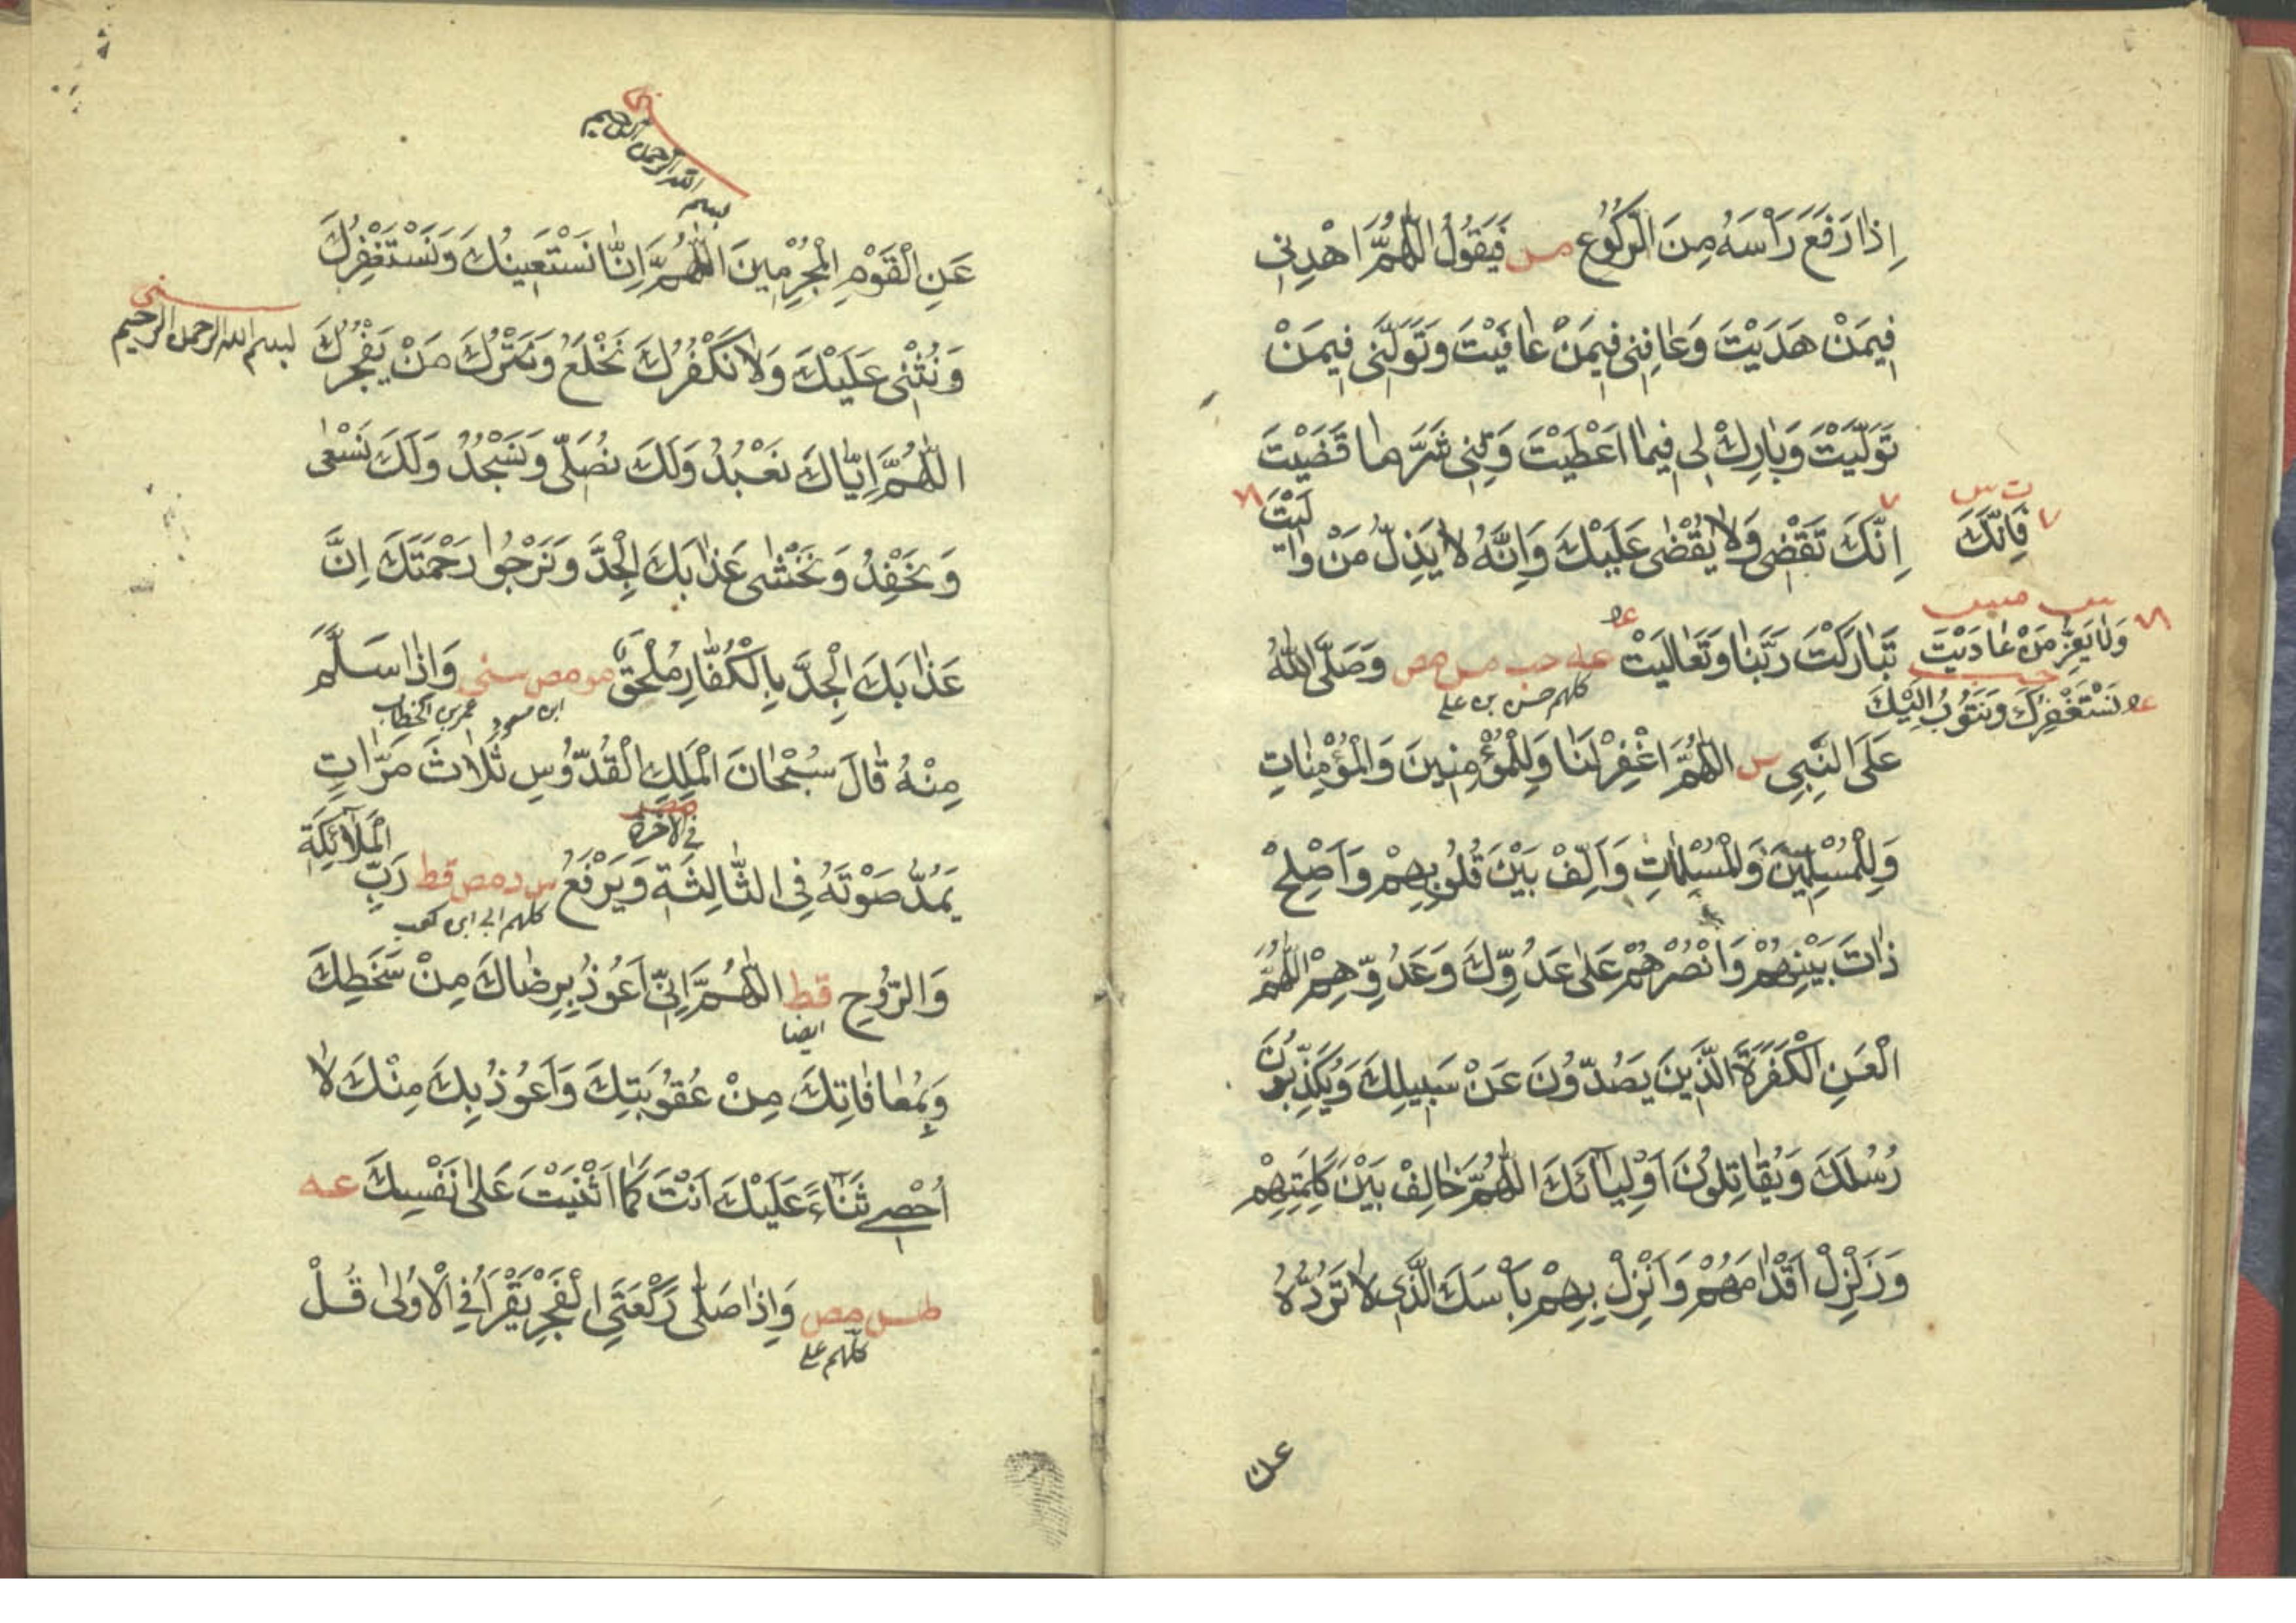 اِذَا رَفَعَ رَأْسَهُ مِنَ الرُّكُوعِ مس فَيَقُولُ اللّٰهُمَّ اهْدِنِي
فِيمَنْ هَدَيْتَ وَعَافِنِي فِيمَنْ عَافَيْتَ وَتَوَلَّنِي فِيمَنْ
تَوَلَّيْتَ وَبَارِكْ لِي فِيمَا اَعْطَيْتَ وَقِنِي شَرَّ مَا قَضَيْتَ
ت س
فَاِنَّكَ
اِنَّكَ تَقْضِي وَلَا يُقْضٰى عَلَيْكَ وَاِنَّهُ لَا يَذِلُّ مَنْ وَالَيْتَ
وَلَا يَعِزُّ مَنْ عَادَيْتَ
تَبَارَكْتَ رَبَّنَا وَتَعَالَيْتَ عه حب مس مص وَصَلَّى اللّٰهُ
كلهم حسن بن علي
نَسْتَغْفِرُكَ وَنَتُوبُ اِلَيْكَ
عَلَى النَّبِيِّ س اللّٰهُمَّ اغْفِرْ لَنَا وَلِلْمُؤْمِنِينَ وَالْمُؤْمِنَاتِ
وَلِلْمُسْلِمِينَ وَالْمُسْلِمَاتِ وَاَلِّفْ بَيْنَ قُلُوبِهِمْ وَاَصْلِحْ
ذَاتَ بَيْنِهِمْ وَانْصُرْهُمْ عَلٰى عَدُوِّكَ وَعَدُوِّهِمْ اللّٰهُمَّ
الْعَنِ الْكَفَرَةَ الَّذِينَ يَصُدُّونَ عَنْ سَبِيلِكَ وَيُكَذِّبُونَ
رُسُلَكَ وَيُقَاتِلُونَ اَوْلِيَآئَكَ اللّٰهُمَّ خَالِفْ بَيْنَ كَلِمَتِهِمْ
وَزَلْزِلْ اَقْدَامَهُمْ وَاَنْزِلْ بِهِمْ بَأْسَكَ الَّذِي لَا تَرُدُّهُ
عن
بسم الله الرحمن الرحيم
عَنِ الْقَوْمِ الْمُجْرِمِينَ اللّٰهُمَّ اِنَّا نَسْتَعِينُكَ وَنَسْتَغْفِرُكَ
سنى
بسم الله الرحمن الرحيم
وَنُثْنِي عَلَيْكَ وَلَا نَكْفُرُكَ نَخْلَعُ وَنَتْرُكُ مَنْ يَفْجُرُكَ
اللّٰهُمَّ اِيَّاكَ نَعْبُدُ وَلَكَ نُصَلِّي وَنَسْجُدُ وَلَكَ نَسْعٰى
وَنَحْفِدُ وَنَخْشٰى عَذَابَكَ الْجِدَّ وَنَرْجُوا رَحْمَتَكَ اِنَّ
عَذَابَكَ الْجِدَّ بِالْكُفَّارِ مُلْحَقٌ مو مص سنى وَاِذَا سَلَّمَ
ابن مسعود عمر بن الخطاب
مِنْهُ قَالَ سُبْحَانَ الْمَلِكِ الْقُدُّوسِ ثَلَاثَ مَرَّاتٍ
مص
في الآخرة
يَمُدُّ صَوْتَهُ فِي الثَّالِثَةِ وَيَرْفَعُ س د مص قط رَبِّ الْمَلَآئِكَةِ
كلهم ابي ابن كعب
وَالرُّوحِ قط اللّٰهُمَّ اِنِّي اَعُوذُ بِرِضَاكَ مِنْ سَخَطِكَ
ايضا
وَبِمُعَافَاتِكَ مِنْ عُقُوبَتِكَ وَاَعُوذُ بِكَ مِنْكَ لَا
اُحْصِي ثَنَآءً عَلَيْكَ اَنْتَ كَمَا اَثْنَيْتَ عَلٰى نَفْسِكَ عه
طس مص وَاِذَا صَلَّى رَكْعَتَيِ الْفَجْرِ يَقْرَاُ فِي الْاُولٰى قُلْ
كلهم علي